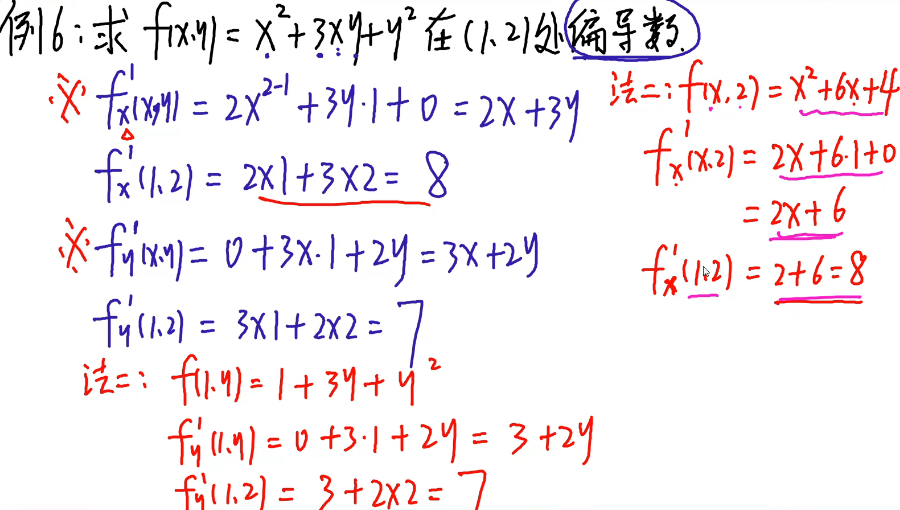 例6:求 f(x,y) = x²+3xy+y² 在(1,2)处偏导数.
※ f'x(x,y) = 2x²⁻¹+3y·1+0 = 2x+3y
f'x(1,2) = 2×1+3×2 = 8
※ f'y(x,y) = 0+3x·1+2y = 3x+2y
f'y(1,2) = 3×1+2×2 = 7
法二: f(1,y) = 1+3y+y²
f'y(1,y) = 0+3·1+2y = 3+2y
f'y(1,2) = 3+2×2 = 7
法二: f(x,2) = x²+6x+4
f'x(x,2) = 2x+6·1+0
= 2x+6
f'x(1,2) = 2+6=8